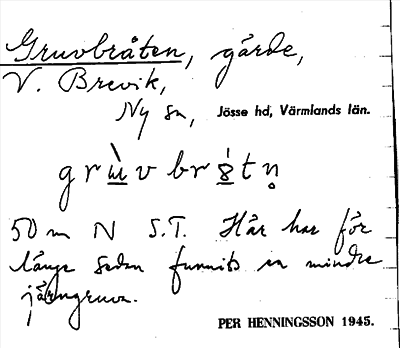 Gruvbråten, gärde,
V. Brevik,
Ny sn, Jösse hd, Värmlands län.
50 m N S.T. Här har för
länge sedan funnits en mindre
järngruva.
PER HENNINGSSON 1945.